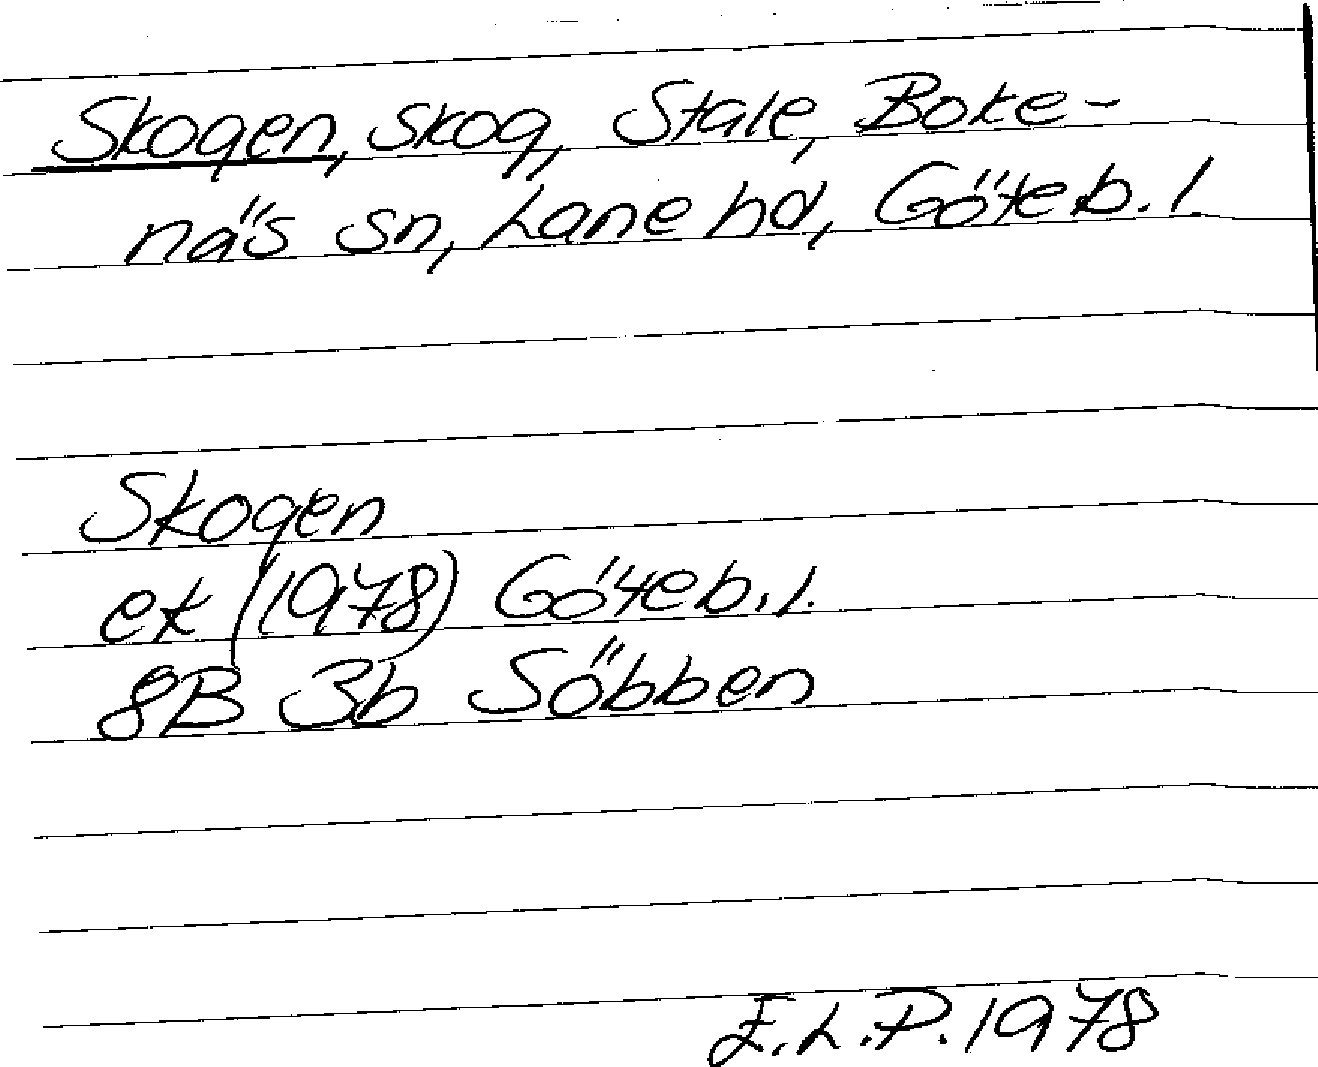 Skogen, skog, Stale, Boke-
näs sn, Lane hd, Göteb. l.
Skogen
ek (1978) Göteb. l.
8B 3b Söbben
E.L.P. 1978